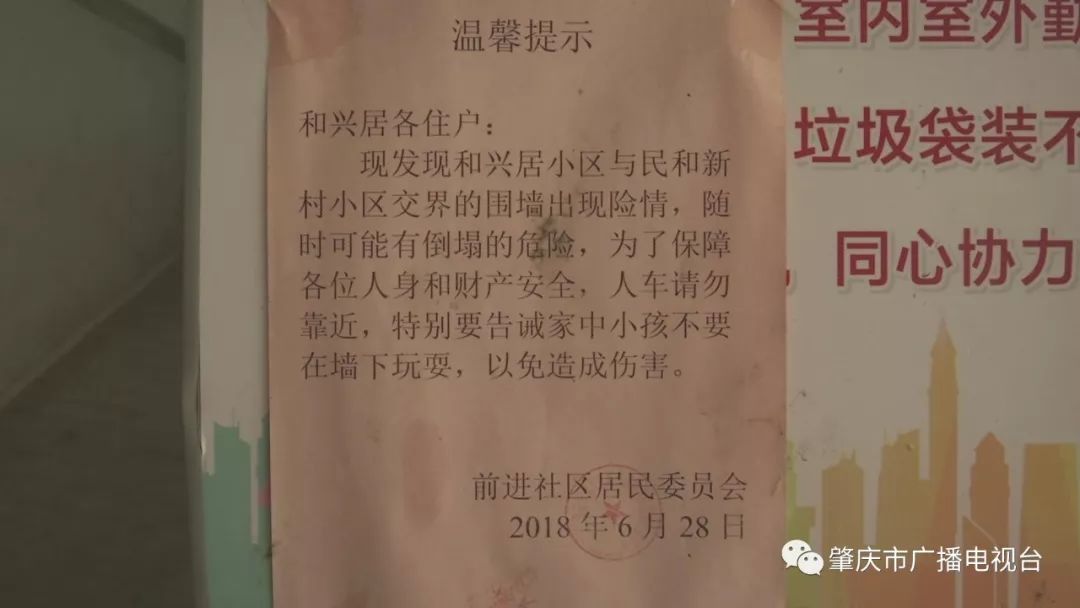 温馨提示
和兴居各住户：
现发现和兴居小区与民和新
村小区交界的围墙出现险情，随
时可能有倒塌的危险，为了保障
各位人身和财产安全，人车请勿
靠近，特别要告诫家中小孩不要
在墙下玩耍，以免造成伤害。
前进社区居民委员会
2018年6月28日
室内室外勤
垃圾袋装不
，同心协力
肇庆市广播电视台